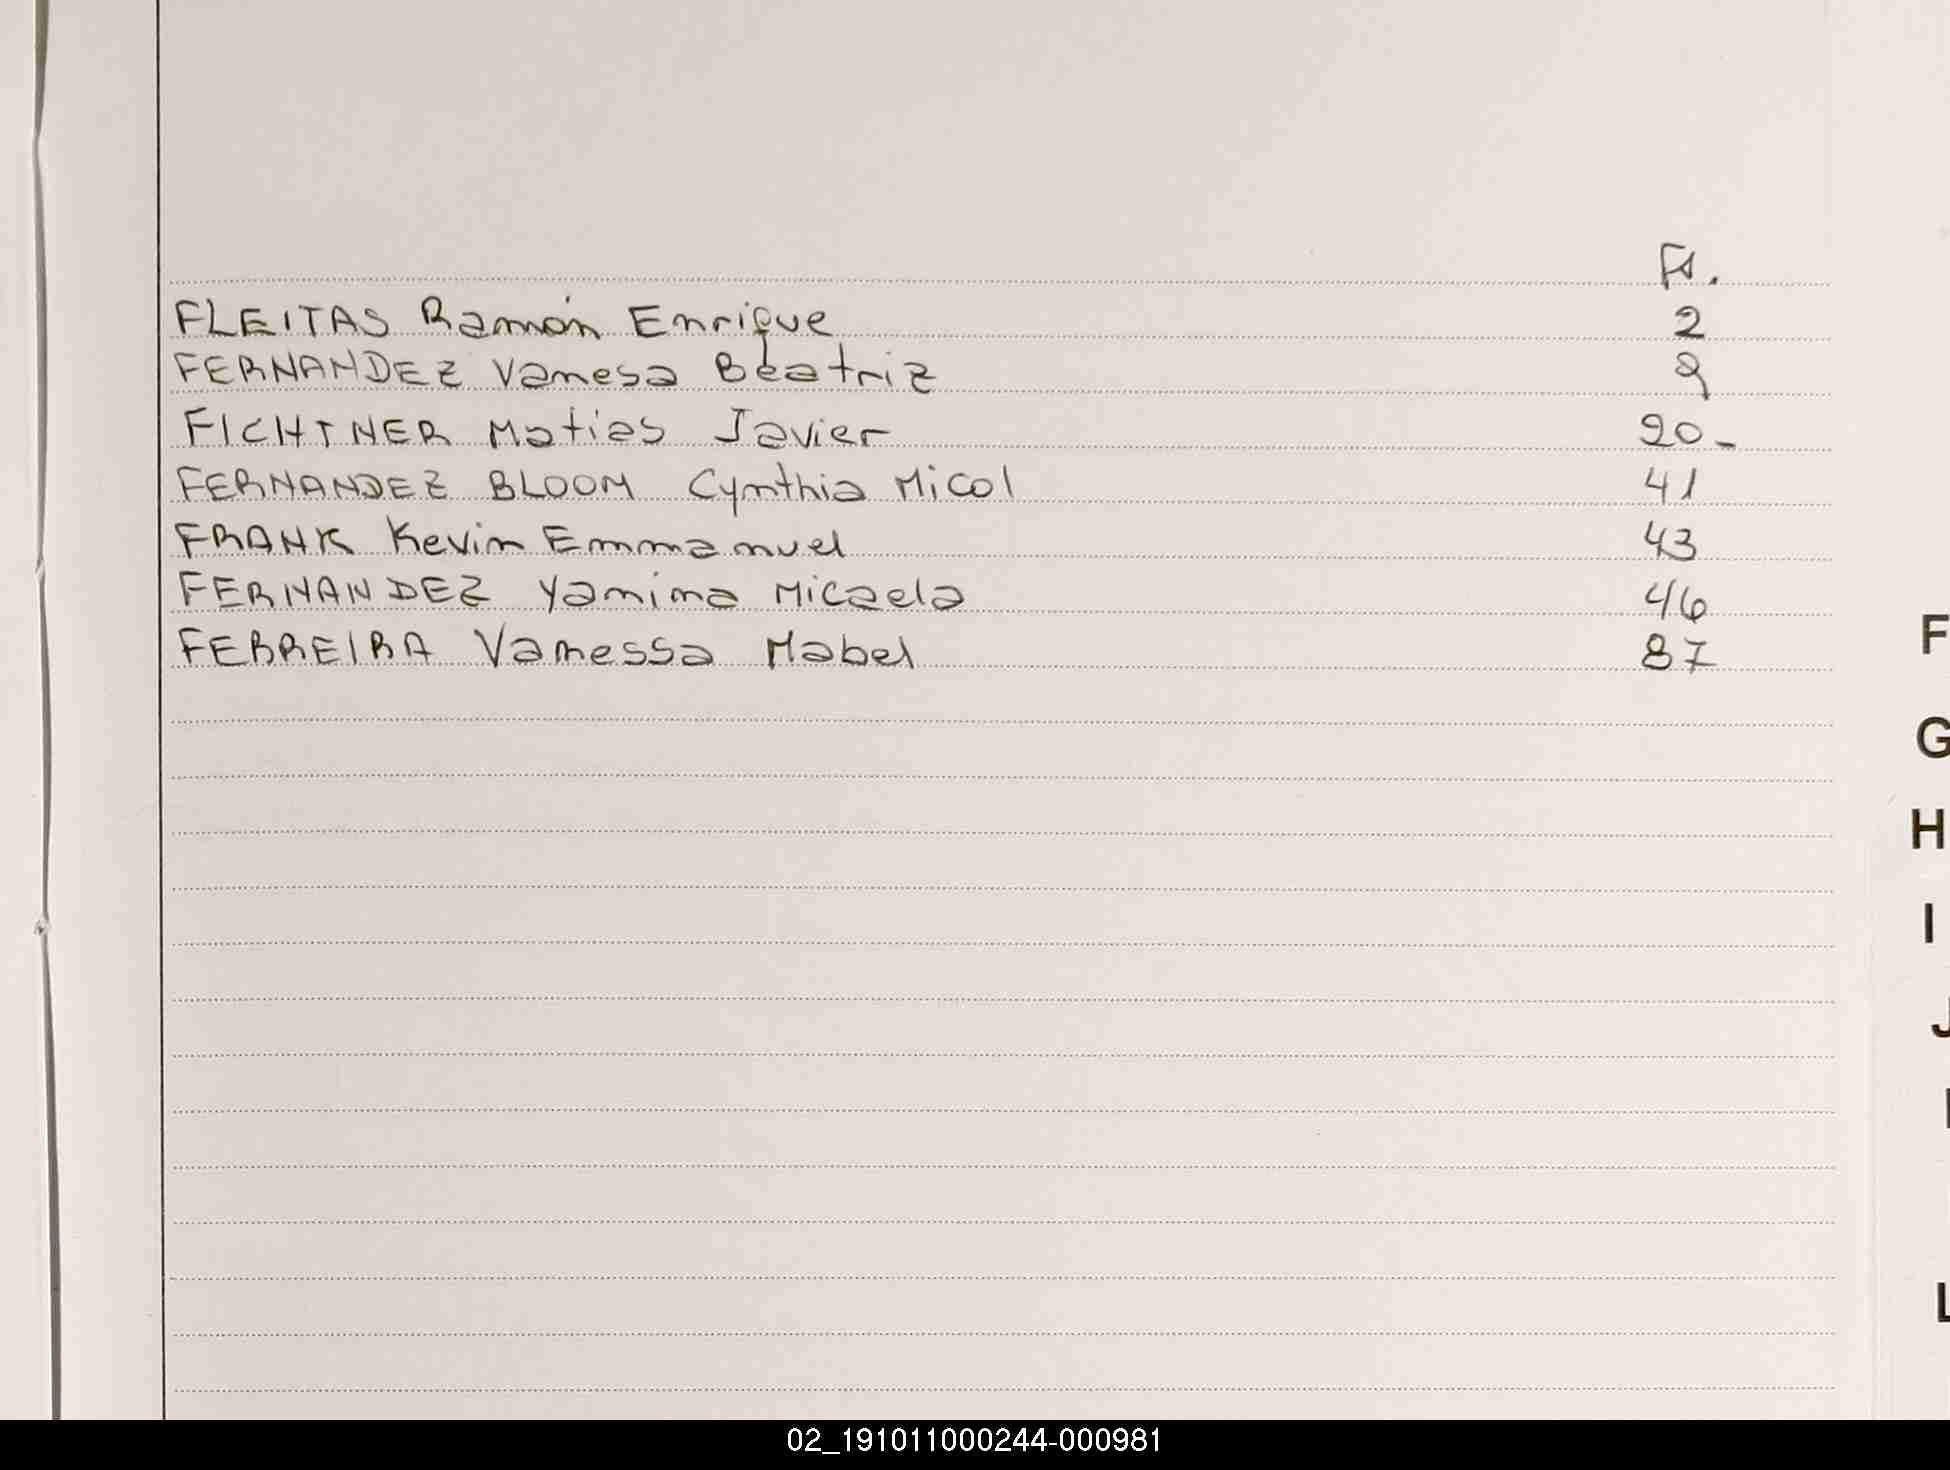 Fs.
FLEITAS Ramón Enrique 2
FERNANDEZ Vanesa Beatriz 9
FICHTNER Matias Javier 20-
FERNANDEZ BLOOM Cynthia Micol 41
FRANK Kevin Emmanuel 43
FERNANDEZ Yamima Micaela 46
FERREIRA Vanessa Mabel 87
F
G
H
I
J
L
02_191011000244-000981